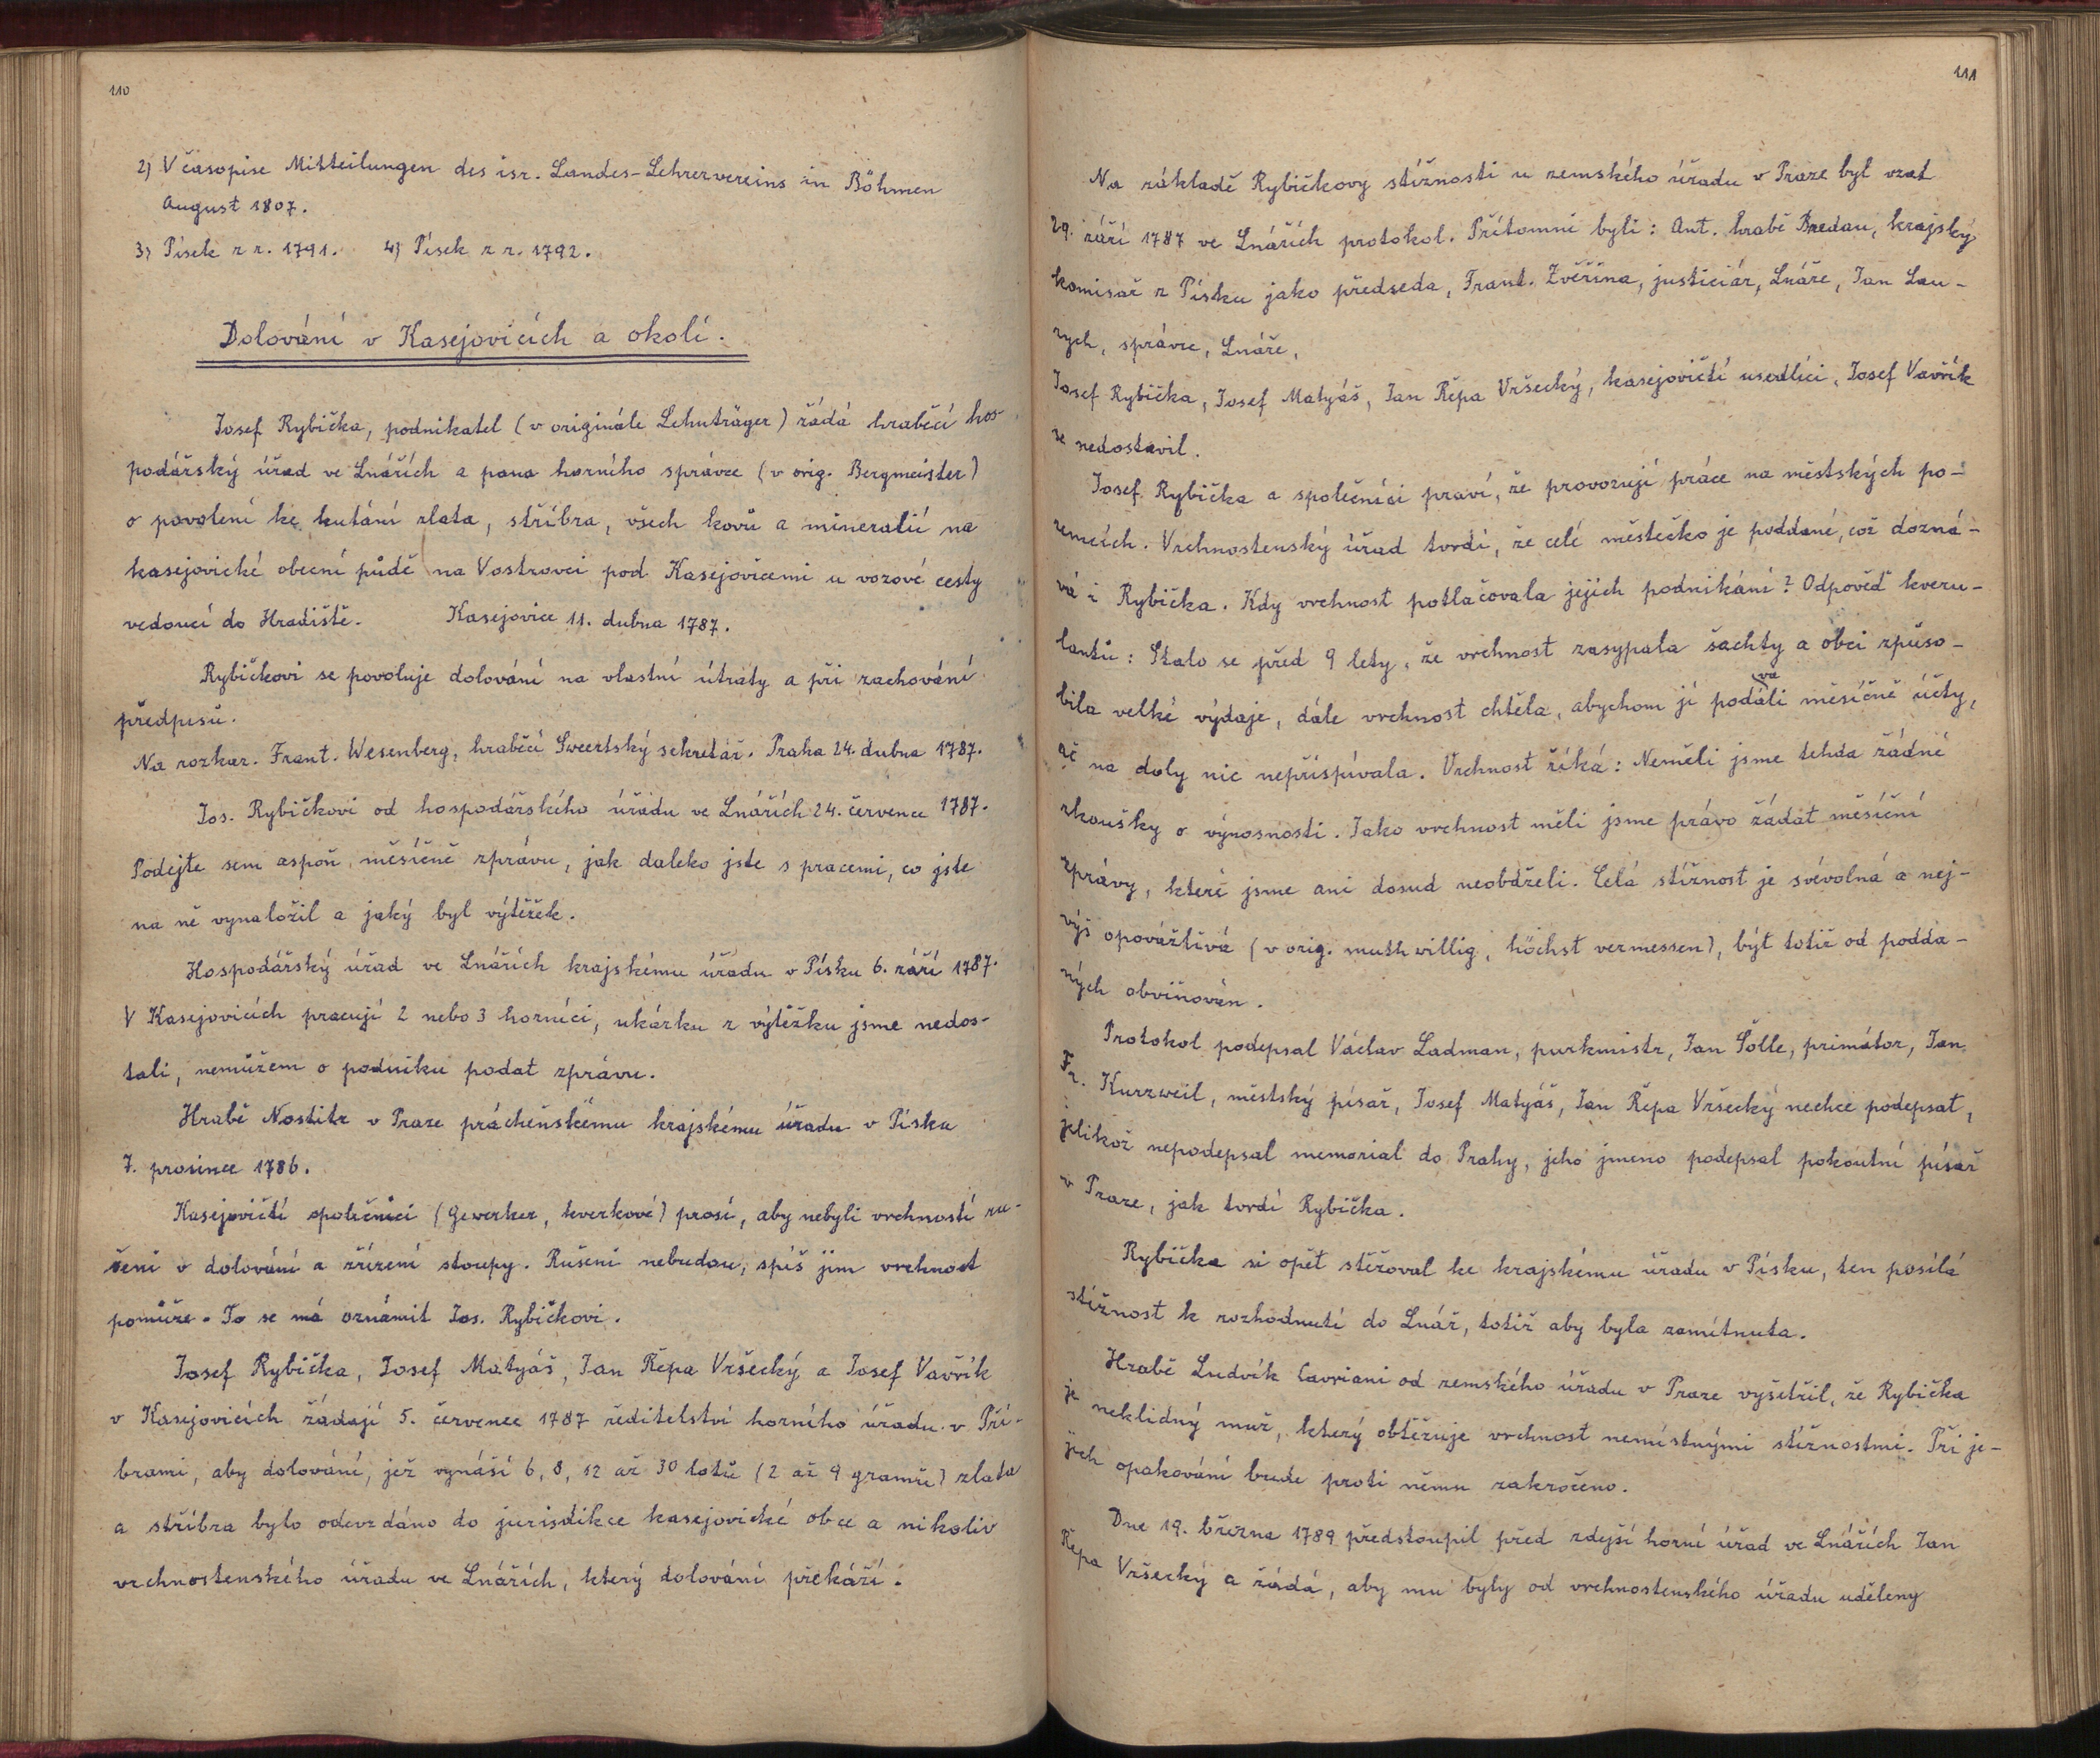 110
2) V časopise Mitteilungen des isr. Landes-Lehrervereins in Böhmen
August 1807.
3) Písek z r. 1791. 4) Písek z r. 1792.
Dolování v Kasejovicích a okolí.
Josef Rybička, podnikatel (v originále Lehnträger) žádá hraběcí hos-
podářský úřad ve Lnářích a pana horního správce (v orig. Bergmeister)
o povolení ke kutání zlata, stříbra, všech kovů a mineralií na
kasejovické obecní půdě na Vostrovci pod Kasejovicemi u vozové cesty
vedoucí do Hradiště. Kasejovice 11. dubna 1787.
Rybičkovi se povoluje dolování na vlastní útraty a při zachování
předpisů.
Na rozkaz. Frant. Wesenberg, hraběcí Sweertský sekretář. Praha 24. dubna 1787.
Jos. Rybičkovi od hospodářského úřadu ve Lnářích 24. července 1787.
Podejte sem aspoň měsíčně zprávu, jak daleko jste s pracemi, co jste
na ně vynaložil a jaký byl výtěžek.
Hospodářský úřad ve Lnářích krajskému úřadu v Písku 6. září 1787.
V Kasejovicích pracují 2 nebo 3 horníci, ukázku z výtěžku jsme nedos-
tali, nemůžem o podniku podat zprávu.
Hrabě Nostitz v Praze prácheňskému krajskému úřadu v Písku
7. prosince 1786.
Kasejovičtí společníci (Gewerker, kverkové) prosí, aby nebyli vrchností ru-
šeni v dolování a zřízení stoupy. Rušeni nebudou, spíš jim vrchnost
pomůže. To se má oznámit Jos. Rybičkovi.
Josef Rybička, Josef Matyáš, Jan Řepa Vršecký a Josef Vavřík
v Kasejovicích žádají 5. července 1787 ředitelství horního úřadu v Pří-
brami, aby dolování, jež vynáší 6, 8, 12 až 30 lotů (2 až 9 gramů) zlata
a stříbra bylo odevzdáno do jurisdikce kasejovické obce a nikoliv
vrchnostenského úřadu ve Lnářích, který dolování překáží.
111
Na základě Rybičkovy stížnosti u zemského úřadu v Praze byl vzat
29. září 1787 ve Lnářích protokol. Přítomni byli: Ant. hrabě Bredau, krajský
komisař z Písku jako předseda, Frant. Zvěřina, justiciár, Lnáře, Jan Lau-
rych, správce, Lnáře,
Josef Rybička, Josef Matyáš, Jan Řepa Vršecký, kasejovičtí usedlíci, Josef Vavřík
se nedostavil.
Josef Rybička a společníci praví, že provozují práce na městských po-
zemcích. Vrchnostenský úřad tvrdí, že celé městečko je poddané, což dozná-
vá i Rybička. Kdy vrchnost potlačovala jejich podnikání? Odpověď kveru-
lantů: Stalo se před 9 lety, že vrchnost zasypala šachty a obci způso-
bila velké výdaje, dále vrchnost chtěla, abychom jí podávali měsíčně účty,
ač na doly nic nepřispívala. Vrchnost říká: Neměli jsme tehda žádné
zkoušky o výnosnosti. Jako vrchnost měli jsme právo žádat měsíční
zprávy, které jsme ani dosud neobdželi. Celá stížnost je svévolná a nej-
výš opovážlivá (v orig. muthwillig, höchst vermessen), být totiž od podda-
ných obviňován.
Protokol podepsal Václav Ladman, purkmistr, Jan Šolle, primátor, Jan
Fr. Kurzweil, městský písař, Josef Matyáš, Jan Řepa Vršecký nechce podepsat,
jelikož nepodepsal memorial do Prahy, jeho jmeno podepsal pokoutní písař
v Praze, jak tvrdí Rybička.
Rybička si opět stěžoval ke krajskému úřadu v Písku, ten posílá
stížnost k rozhodnutí do Lnář, totiž aby byla zamítnuta.
Hrabě Ludvík Cavriani od zemského úřadu v Praze vyšetřil, že Rybička
je neklidný muž, který obtěžuje vrchnost nemístnými stížnostmi. Při je-
jich opakování bude proti němu zakročeno.
Dne 19. března 1789 předstoupil před zdejší horní úřad ve Lnářích Jan
Řepa Vršecký a žádá, aby mu byly od vrchnostenského úřadu uděleny